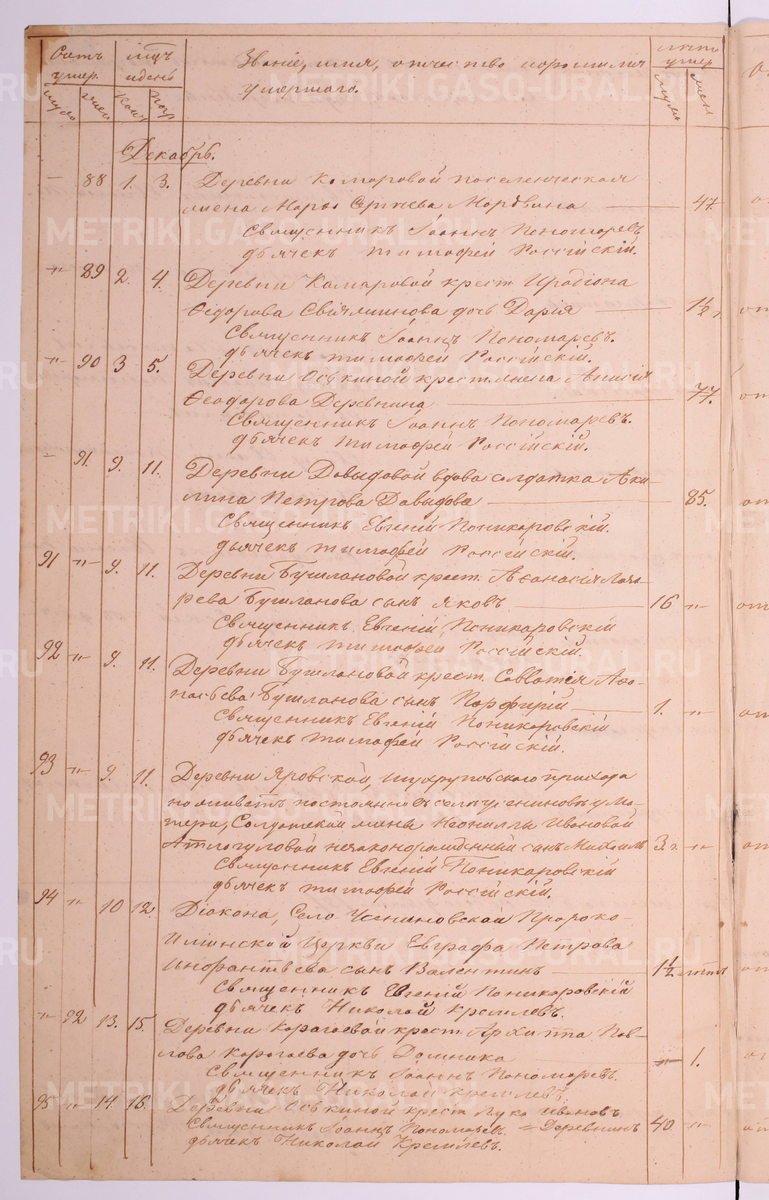 Счетъ умер. мѣс. и день Званіе, имя, отчество и фамилія лѣта умер.
муж. жен. кон. пог. умершаго. муж. жен.
Декабрь.
— 88 1. 3. Деревни Комаровой поселенческая
жена Марья Сергѣева Мордвина — 47.
Священникъ Іоаннъ Пономаревъ
дьячекъ Тимофей Россійскій.
" 89 2. 4. Деревни Комаровой крест. Иродіона
Ѳедорова дочь Дарія — 1½
Священникъ Іоаннъ Пономаревъ.
дьячекъ Тимофей Россійскій.
" 90 3 5. Деревни Оськиной крестьянка Анисія
Ѳеодорова Деревнина — 77.
Священникъ Іоаннъ Пономаревъ.
дьячекъ Тимофей Россійскій.
— 91. 9. 11. Деревни Давыдовой вдова солдатка Аки-
лина Петрова Давыдова — 85.
Священникъ Евгеній Поникаровскій.
дьячекъ Тимофей Россійскій.
91 " 9. 11. Деревни Бушлановой крест. Аѳанасія Лаза-
рева Бушланова сынъ Яковъ — 16 "
Священникъ Евгеній Поникаровскій
дьячекъ Тимофей Россійскій.
92 " 9. 11. Деревни Бушлановой крест. Савватія Аѳо-
насьева Бушланова сынъ Порфирій — 1. "
Священникъ Евгеній Поникаровскій
дьячекъ Тимофей Россійскій.
93 " 9. 11. Деревни Яровской, прихода
въ селѣ у ма-
тери, Солдатской жены Неониллы Ивановой
незаконорожденный сынъ — 3 "
Священникъ Евгеній Поникаровскій
дьячекъ Тимофей Россійскій.
94 " 10 12 Діакона, Село Усениновской Пророко-
Илiинской Церкви Евграфа Петрова
сынъ Валентинъ — 1½
Священникъ Евгеній Поникаровскій
дьячекъ Николай Кремлевъ.
" 92 13. 15. Деревни Корагаевой крест. Архипа Пав-
лова Корагаева дочь Домника — 1.
Священникъ Іоаннъ Пономаревъ
дьячекъ Николай Кремлевъ.
95 " 14. 16. Деревни Оськиной крест. Лука Ивановъ
Священникъ Іоаннъ Пономаревъ = Деревнинъ 40 "
дьячекъ Николай Кремлевъ.
METRIKI.GASO-URAL.RU